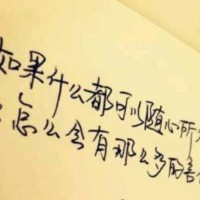 如果什么都可以随心所
怎么会有那么多的善